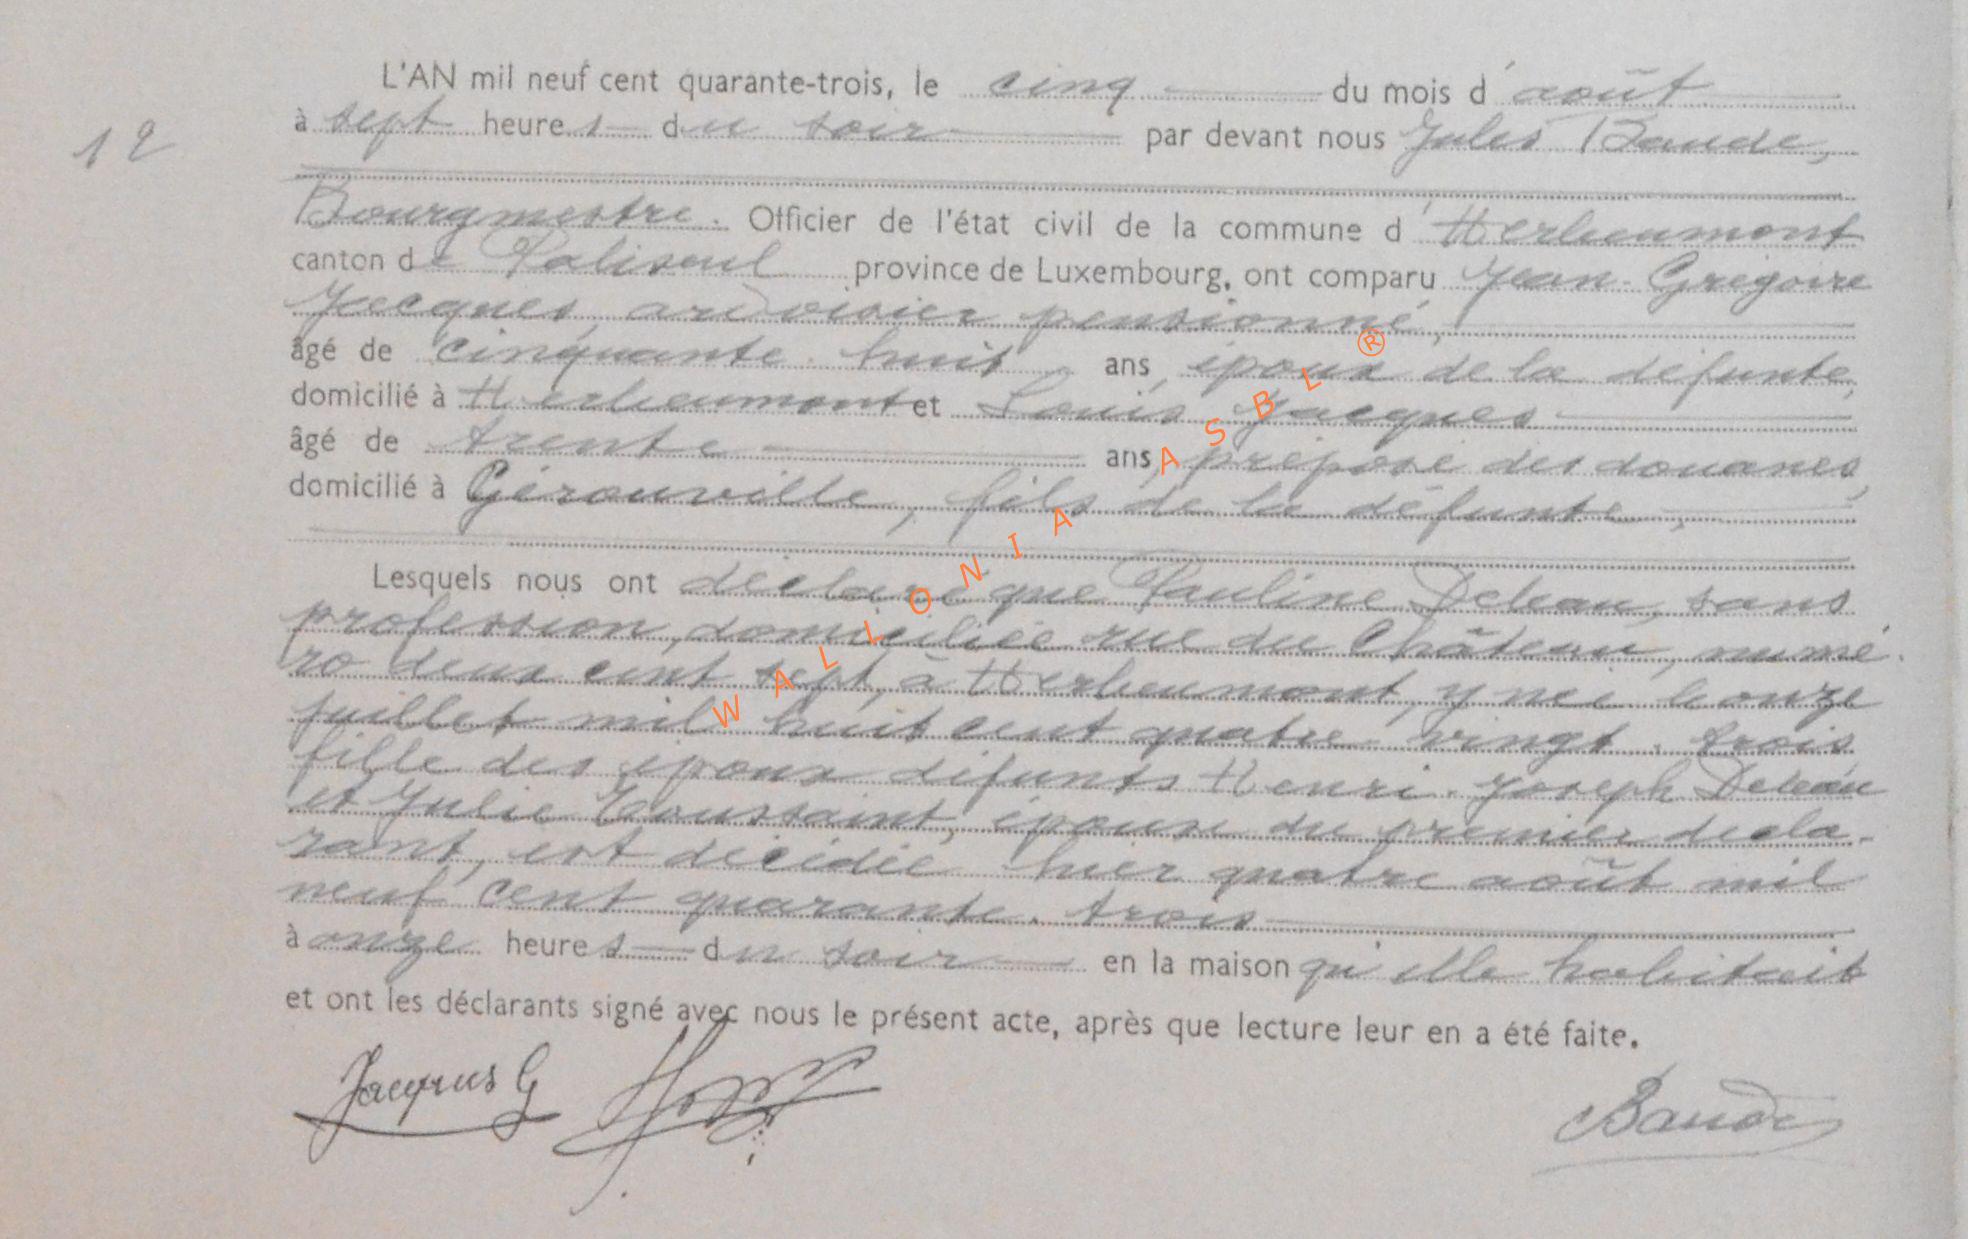 L'AN mil neuf cent quarante-trois, le cinq du mois d'août
12
à sept heures du soir par devant nous Jules Baude,
Bourgmestre. Officier de l'état civil de la commune d'Herbeumont
canton de Paliseul province de Luxembourg, ont comparu Jean-Grégoire
Jacques, ardoisier pensionné,
âgé de cinquante-huit ans, époux de la défunte,
domicilié à Herbeumont et Louis Jacques
âgé de trente ans, préposé des douanes,
domicilié à Gérouville, fils de la défunte,
Lesquels nous ont déclaré que Pauline Deleau, sans
profession, domiciliée rue du Château, numé-
ro deux cent sept, à Herbeumont, y née le onze
juillet mil huit cent quatre-vingt-trois
fille des époux défunts Henri-Joseph Deleau
et Julie Toussaint, épouse du premier décla-
rant, est décédée hier quatre août mil
neuf cent quarante-trois
à onze heures du soir en la maison qu'elle habitait
et ont les déclarants signé avec nous le présent acte, après que lecture leur en a été faite.
Jacques G
Baude
WALLONIA ASBL ®